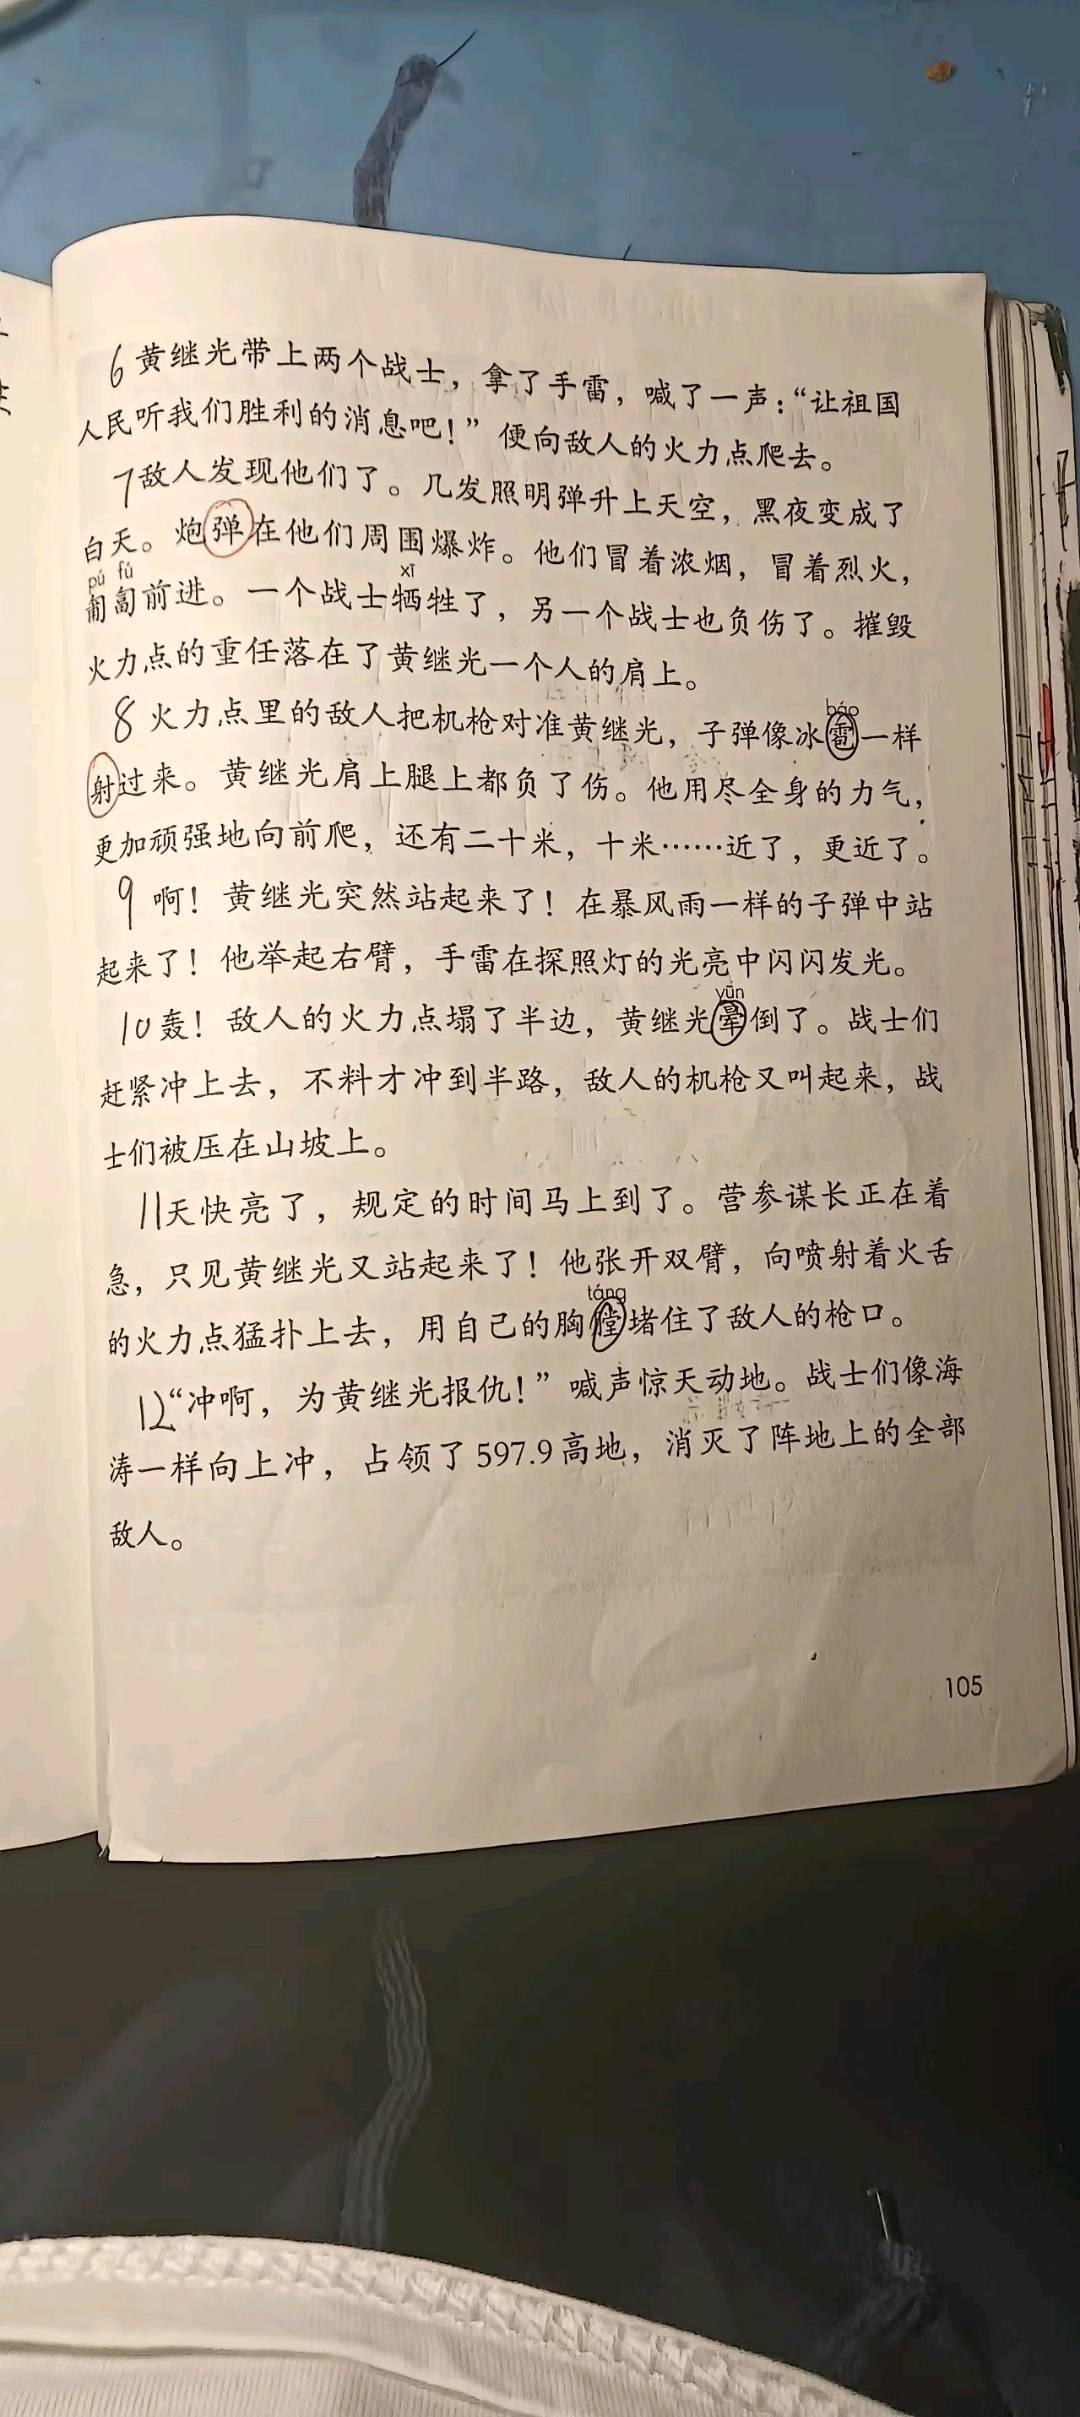 6 黄继光带上两个战士，拿了手雷，喊了一声：“让祖国
人民听我们胜利的消息吧！”便向敌人的火力点爬去。
7 敌人发现他们了。几发照明弹升上天空，黑夜变成了
白天。炮弹在他们周围爆炸。他们冒着浓烟，冒着烈火，
pú fú xī
匍匐前进。一个战士牺牲了，另一个战士也负伤了。摧毁
火力点的重任落在了黄继光一个人的肩上。
báo
8 火力点里的敌人把机枪对准黄继光，子弹像冰雹一样
射过来。黄继光肩上腿上都负了伤。他用尽全身的力气，
更加顽强地向前爬，还有二十米，十米……近了，更近了。
9 啊！黄继光突然站起来了！在暴风雨一样的子弹中站
起来了！他举起右臂，手雷在探照灯的光亮中闪闪发光。
yūn
10 轰！敌人的火力点塌了半边，黄继光晕倒了。战士们
赶紧冲上去，不料才冲到半路，敌人的机枪又叫起来，战
士们被压在山坡上。
11 天快亮了，规定的时间马上到了。营参谋长正在着
急，只见黄继光又站起来了！他张开双臂，向喷射着火舌
táng
的火力点猛扑上去，用自己的胸膛堵住了敌人的枪口。
12 “冲啊，为黄继光报仇！”喊声惊天动地。战士们像海
涛一样向上冲，占领了597.9高地，消灭了阵地上的全部
敌人。
105